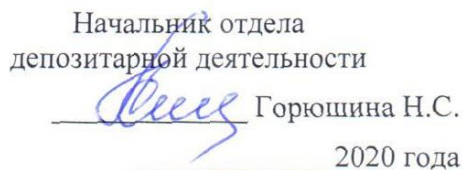 Начальник отдела
депозитарной деятельности
Горюшина Н.С.
2020 года